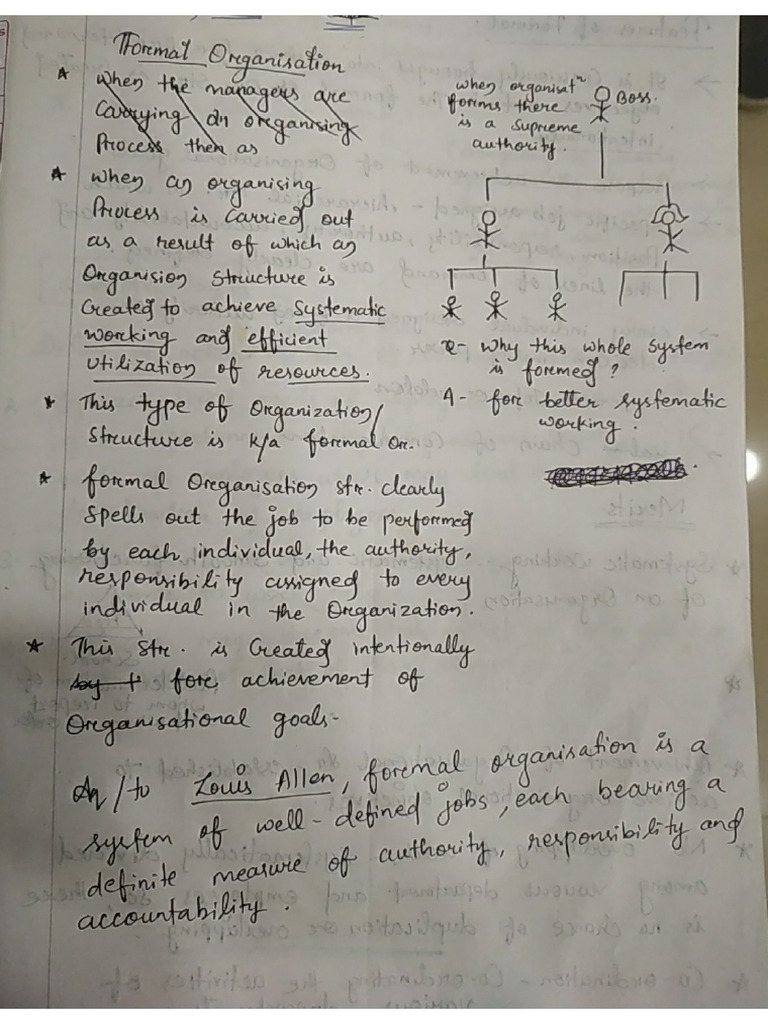 Formal Organisation
* When the managers are
Carrying on organising
Process then as
* When an organising
Process is Carried out
as a result of which an
Organision Structure is
Created to achieve Systematic
working and efficient
Utilization of resources.
* This type of Organization/
Structure is k/a formal Or.
* formal Organisation str. clearly
Spells out the job to be performed
by each individual, the authority,
responsibility assigned to every
individual in the Organization.
* This Str. is Created intentionally
by t for achievement of
Organisational goals-
Aq/to Louis Allen, formal organisation is a
system of well-defined jobs, each bearing a
definite measure of authority, responsibility and
accountability.
when organisatn
forms there
is a Supreme
authority.
Boss.
Q- Why this whole System
is formed?
A- for better systematic
working.